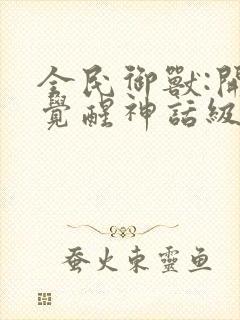 全民御獸:開
覺醒神話級
蚕火東靈魚